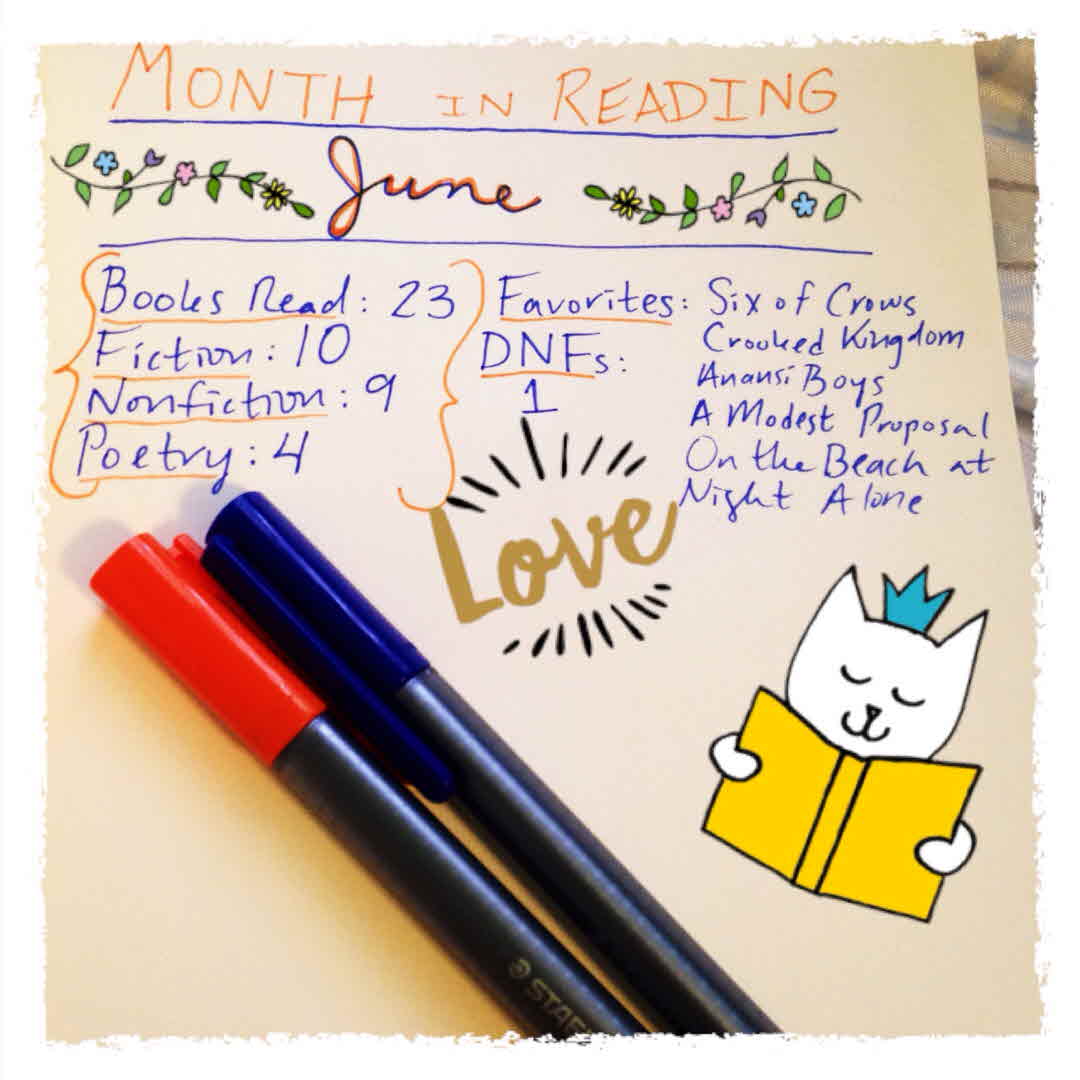 MONTH IN READING
June
Books Read: 23
Fiction: 10
Nonfiction: 9
Poetry: 4
Favorites: Six of Crows
Crooked Kingdom
Anansi Boys
A Modest Proposal
On the Beach at
Night Alone
DNFs:
1
Love
STAE